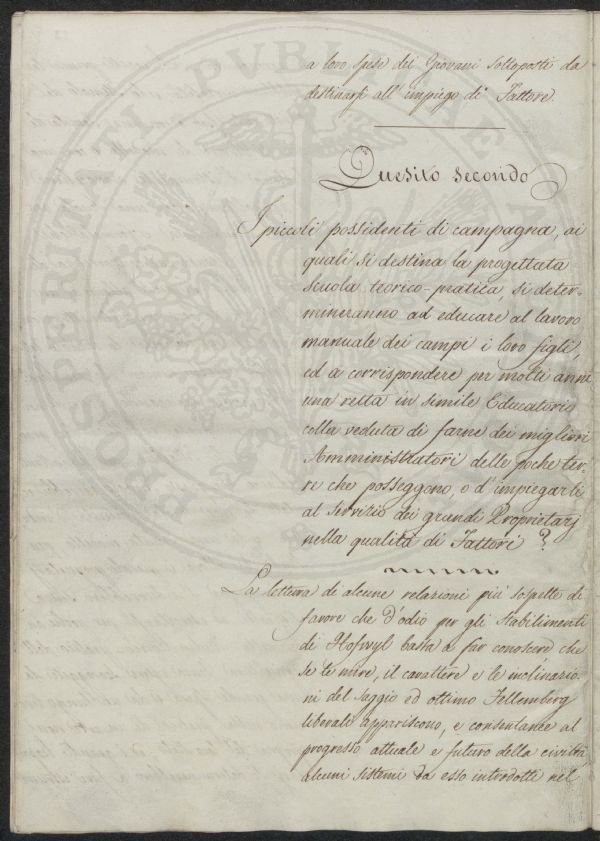 a loro spese dei Giovani sottoposti da
destinarsi all'impiego di Fattore.
Quesito secondo
I piccoli possidenti di campagna, ai
quali si destina la progettata
scuola teorico-pratica, si deter-
mineranno ad educare al lavoro
manuale dei campi i loro figli,
ed a corrispondere per molti anni
una retta in simile Educatorio
colla veduta di farne dei migliori
Amministratori delle poche ter-
re che posseggono, o d'impiegarli
al servizio dei grandi Proprietarj
nella qualità di Fattori?
La lettura di alcune relazioni più sospette di
favore che d'odio per gli Stabilimenti
di Hofwyl basta a far conoscere che
se le mire, il carattere e le inclinazio-
ni del saggio ed ottimo Fellemberg
liberale appariscono, e consentanee al
progresso attuale e futuro della civiltà,
alcuni sistemi da esso introdotti nel
PROSPERITATI PVBLICAE